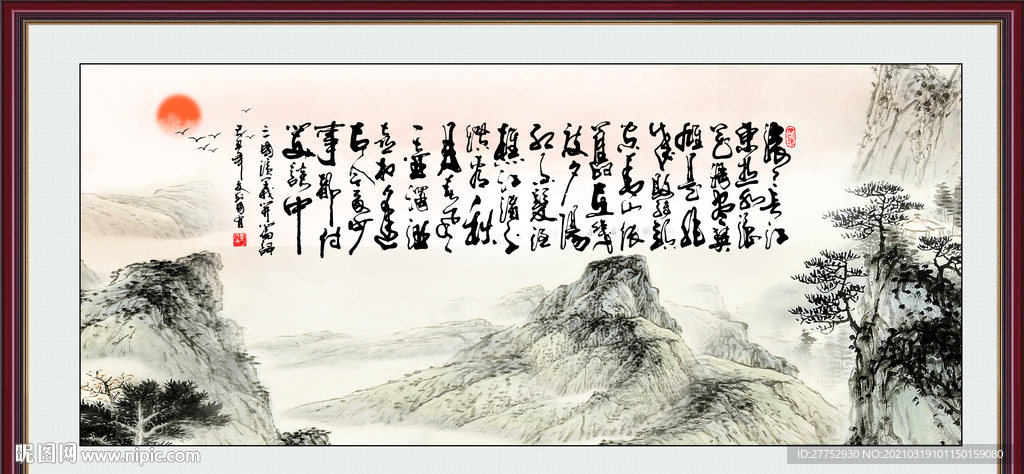 滚滚长江
東逝水浪
花淘尽英
雄是非
成敗转頭
空青山依
舊在幾
度夕陽
红白髮渔
樵江渚上
惯看秋
月春风
一壶濁酒
喜相逢
古今多少
事都付
笑談中
三國演義开篇詞
昵图网 www.nipic.com
ID:27752930 NO:20210319101150159080